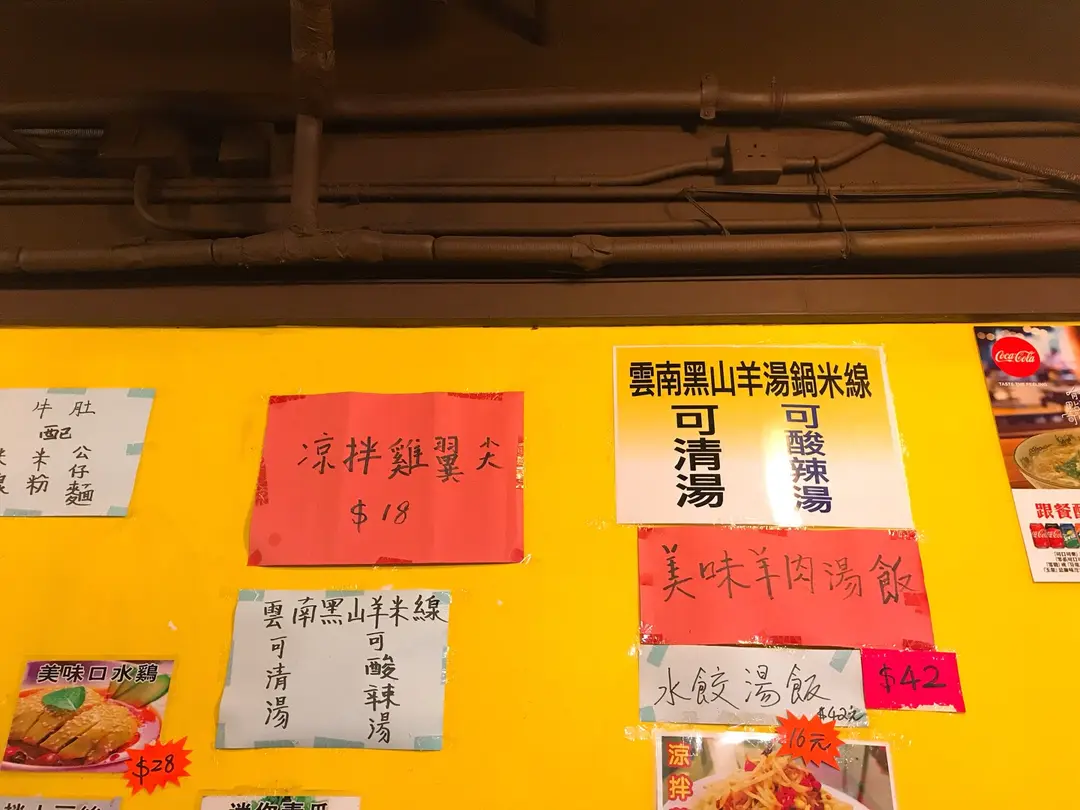 牛肚
配
公仔麵
米粉
凉拌雞翼尖
$18
雲南黑山羊湯鍋米線
可清湯
可酸辣湯
Coca-Cola
TASTE THE FEELING
跟餐
美味羊肉湯飯
雲南黑山羊米線
可清湯
可酸辣湯
水餃湯飯
$42元
$42
美味口水鷄
$28
涼拌
16元